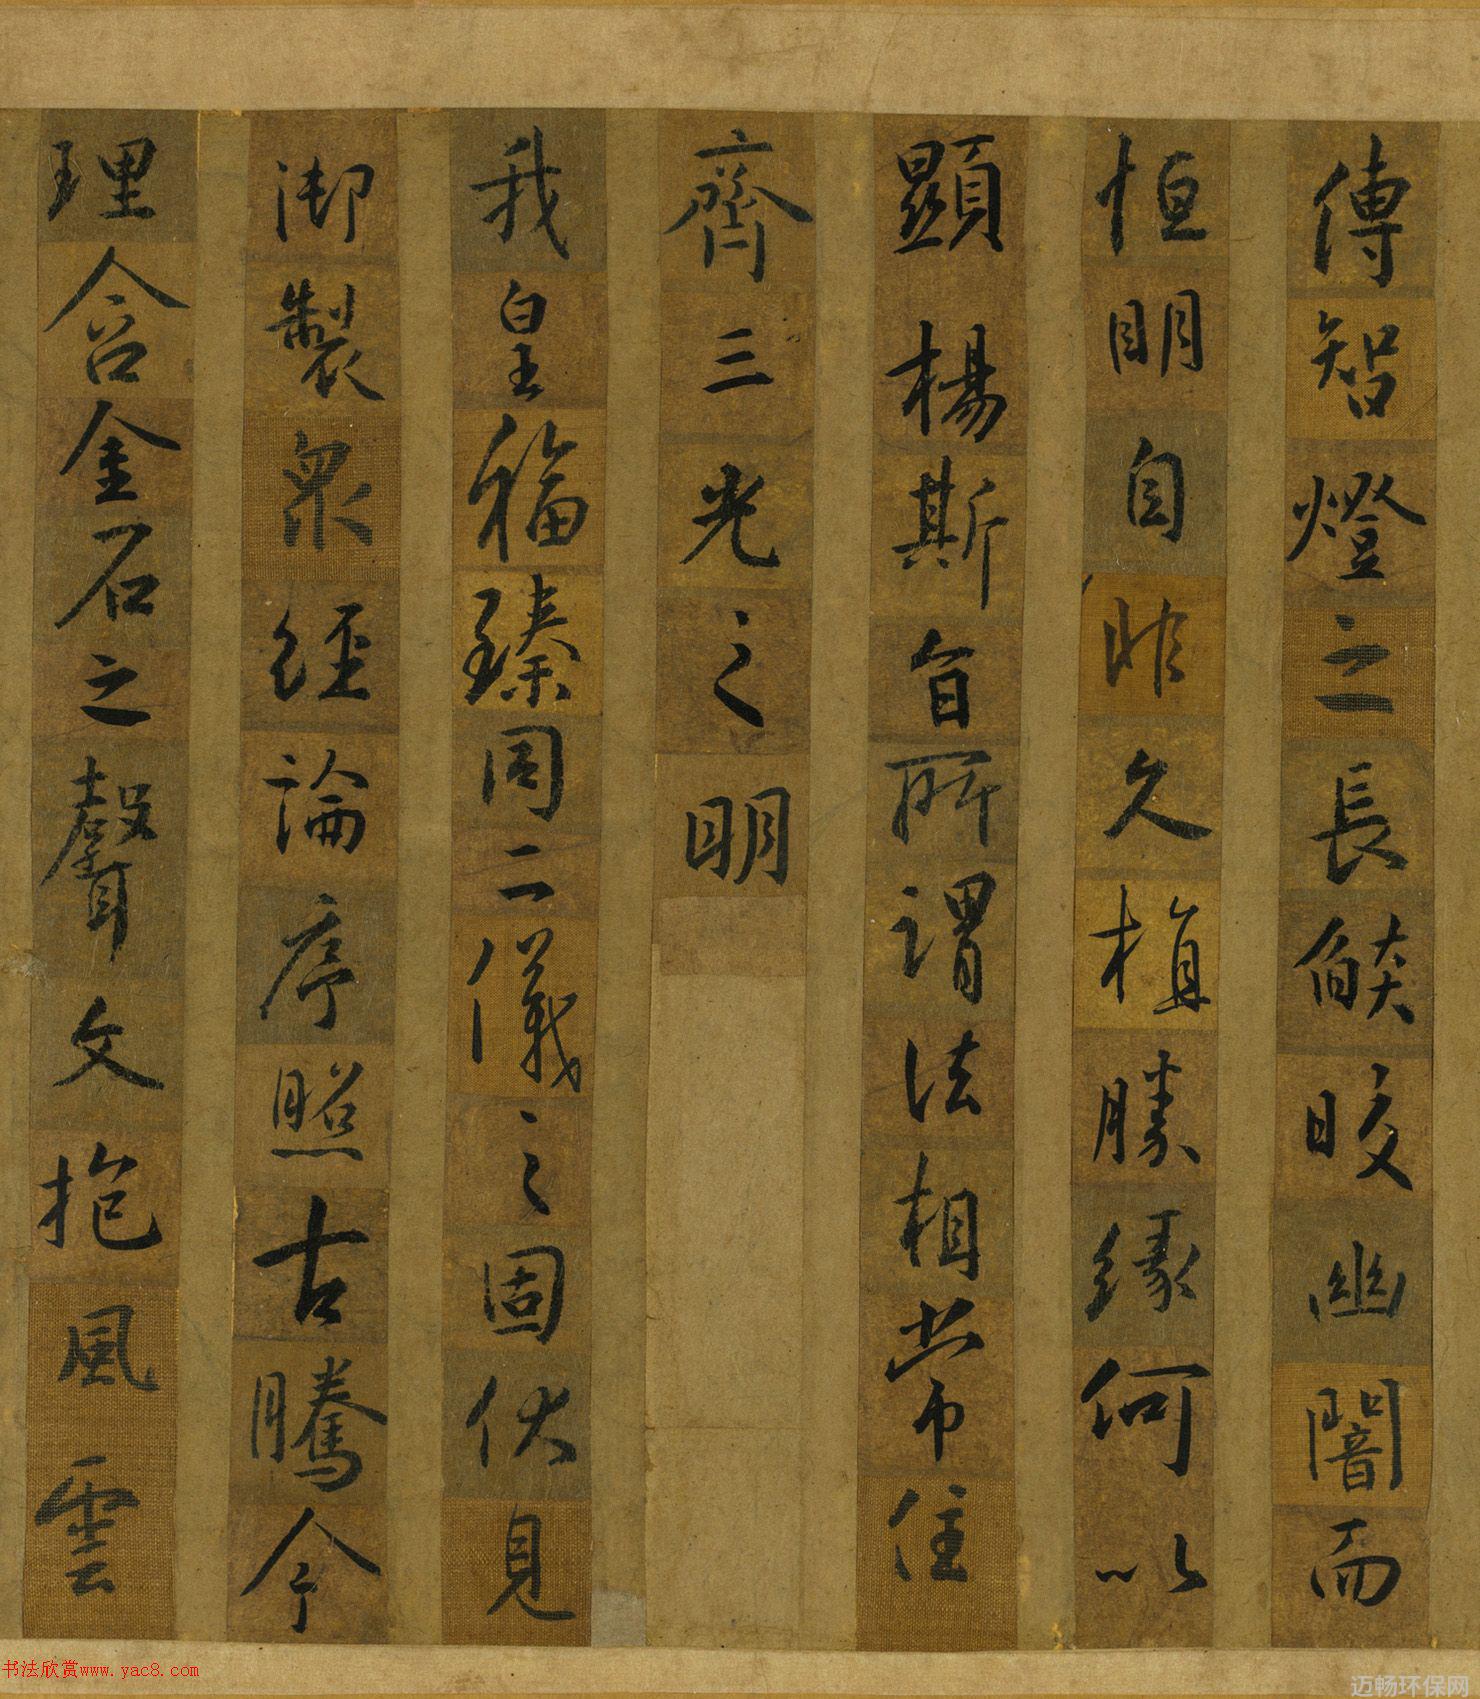 傳智燈之長燄皎幽闇而
恒明自非久植勝緣何以
顯楊斯旨所謂法相常住
齊三光之明
我皇福臻同二儀之固伏見
御製眾經論序照古騰今
理含金石之聲文抱風雲
书法欣赏www.yac8.com
迈畅环保网